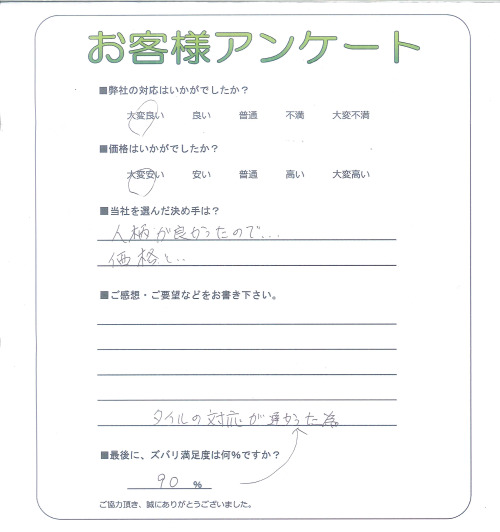 お客様アンケート
■弊社の対応はいかがでしたか？
大変良い 良い 普通 不満 大変不満
■価格はいかがでしたか？
大変安い 安い 普通 高い 大変高い
■当社を選んだ決め手は？
人柄が良かったので...
価格と..
■ご感想・ご要望などをお書き下さい。
タイルの対応が遅かった為。
■最後に、ズバリ満足度は何%ですか？
90 %
ご協力頂き、誠にありがとうございました。